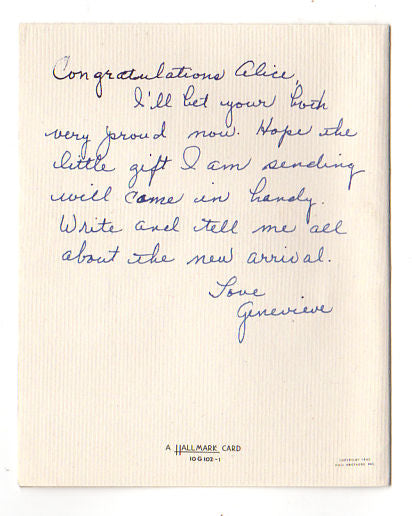 Congratulations Alice,
I'll bet your both
very proud now. Hope the
little gift I am sending
will come in handy.
Write and tell me all
about the new arrival.
Love
Genevieve
A HALLMARK CARD
10G102-1